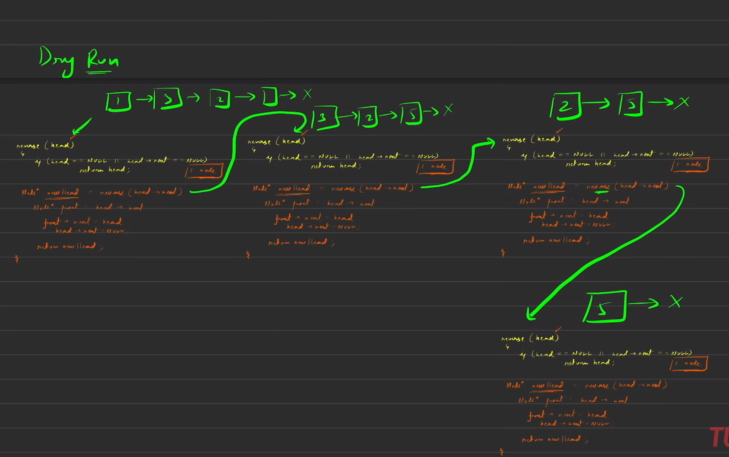 Dry Run
1 → 3 → 2 → → X
3 → 2 → 5 → X
2 → 3 → X
reverse (head)
{
if (head == NULL || head → next == NULL)
return head;
1 node
Node* newHead = reverse (head → next)
Node* front = head → next
front → next = head
head → next = NULL
return newHead;
}
reverse (head)
{
if (head == NULL || head → next == NULL)
return head;
1 node
Node* newHead = reverse (head → next)
Node* front = head → next
front → next = head
head → next = NULL
return newHead;
}
reverse (head)
{
if (head == NULL || head → next == NULL)
return head;
1 node
Node* newHead = reverse (head → next)
Node* front = head → next
front → next = head
head → next = NULL
return newHead;
}
5 → X
reverse (head)
{
if (head == NULL || head → next == NULL)
return head;
1 node
Node* newHead = reverse (head → next)
Node* front = head → next
front → next = head
head → next = NULL
return newHead;
}